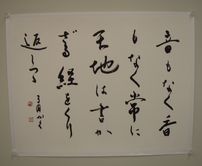 音もなく香
もなく常に
天地は書か
ざる経をくり
返しつつ